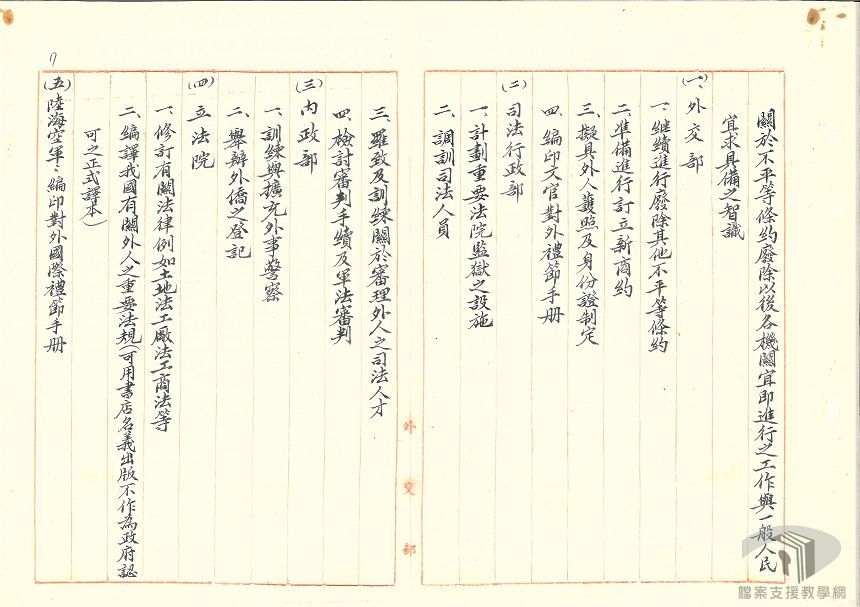 關於不平等條約廢除以後各機關宜即進行之工作與一般人民
宜求具備之智識
(一)、外交部
一、繼續進行廢除其他不平等條約
二、準備進行訂立新商約
三、擬具外人護照及身份證制定
四、編印文官對外禮節手册
(二)司法行政部
一、計劃重要法院監獄之設施
二、調訓司法人員
三、羅致及訓練關於審理外人之司法人才
四、檢討審判手續及軍法審判
(三)內政部
一、訓練與擴充外事警察
二、舉辦外僑之登記
(四)立法院
一、修訂有關法律例如土地法工廠法工商法等
二、編譯我國有關外人之重要法規(可用書店名義出版不作為政府認
可之正式譯本)
(五)陸海空軍:編印對外國際禮節手册
外交部
檔案支援教學網